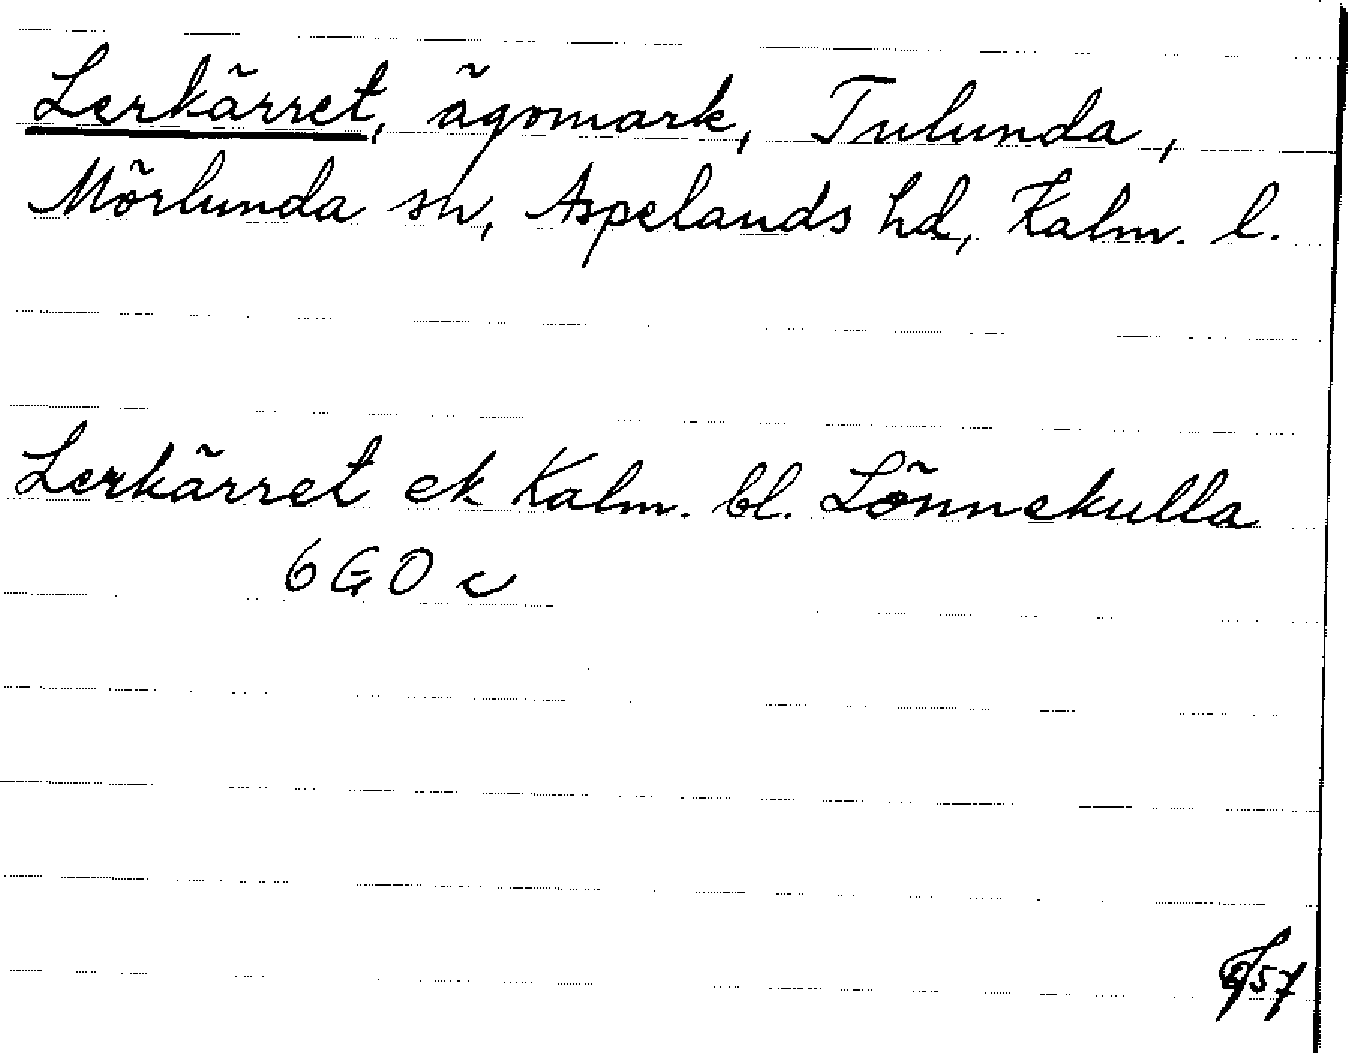 Lerkärret, ägomark, Tulunda,
Mörlunda sn, Aspelands hd, Kalm. l.
Lerkärret ek Kalm. bl. Lönnekulla
6 G O c
57